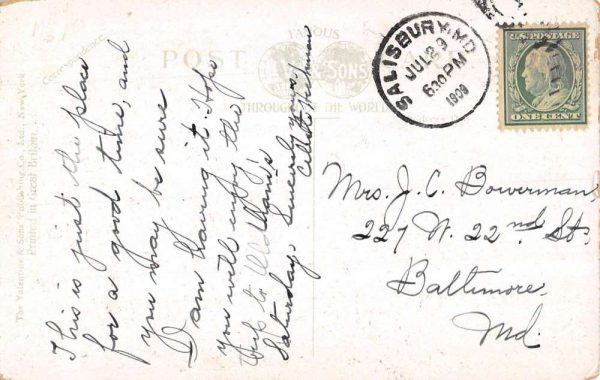 Correspondence.
FAMOUS
POST
& SONS
THROUGHOUT THE WORLD
The Valentine & Sons Publishing Co., Ltd., New York
Printed in Great Britain.
This is just the place
for a good time, and
you may be sure
I am having it. Hope
you will enjoy the
trip to
Saturday. Sincerely yours
SALISBURY, MD.
JUL 29
630 PM
1909
U.S. POSTAGE
ONE CENT
Mrs. J. C. Bowerman,
227 W. 22nd St.
Baltimore.
Md.